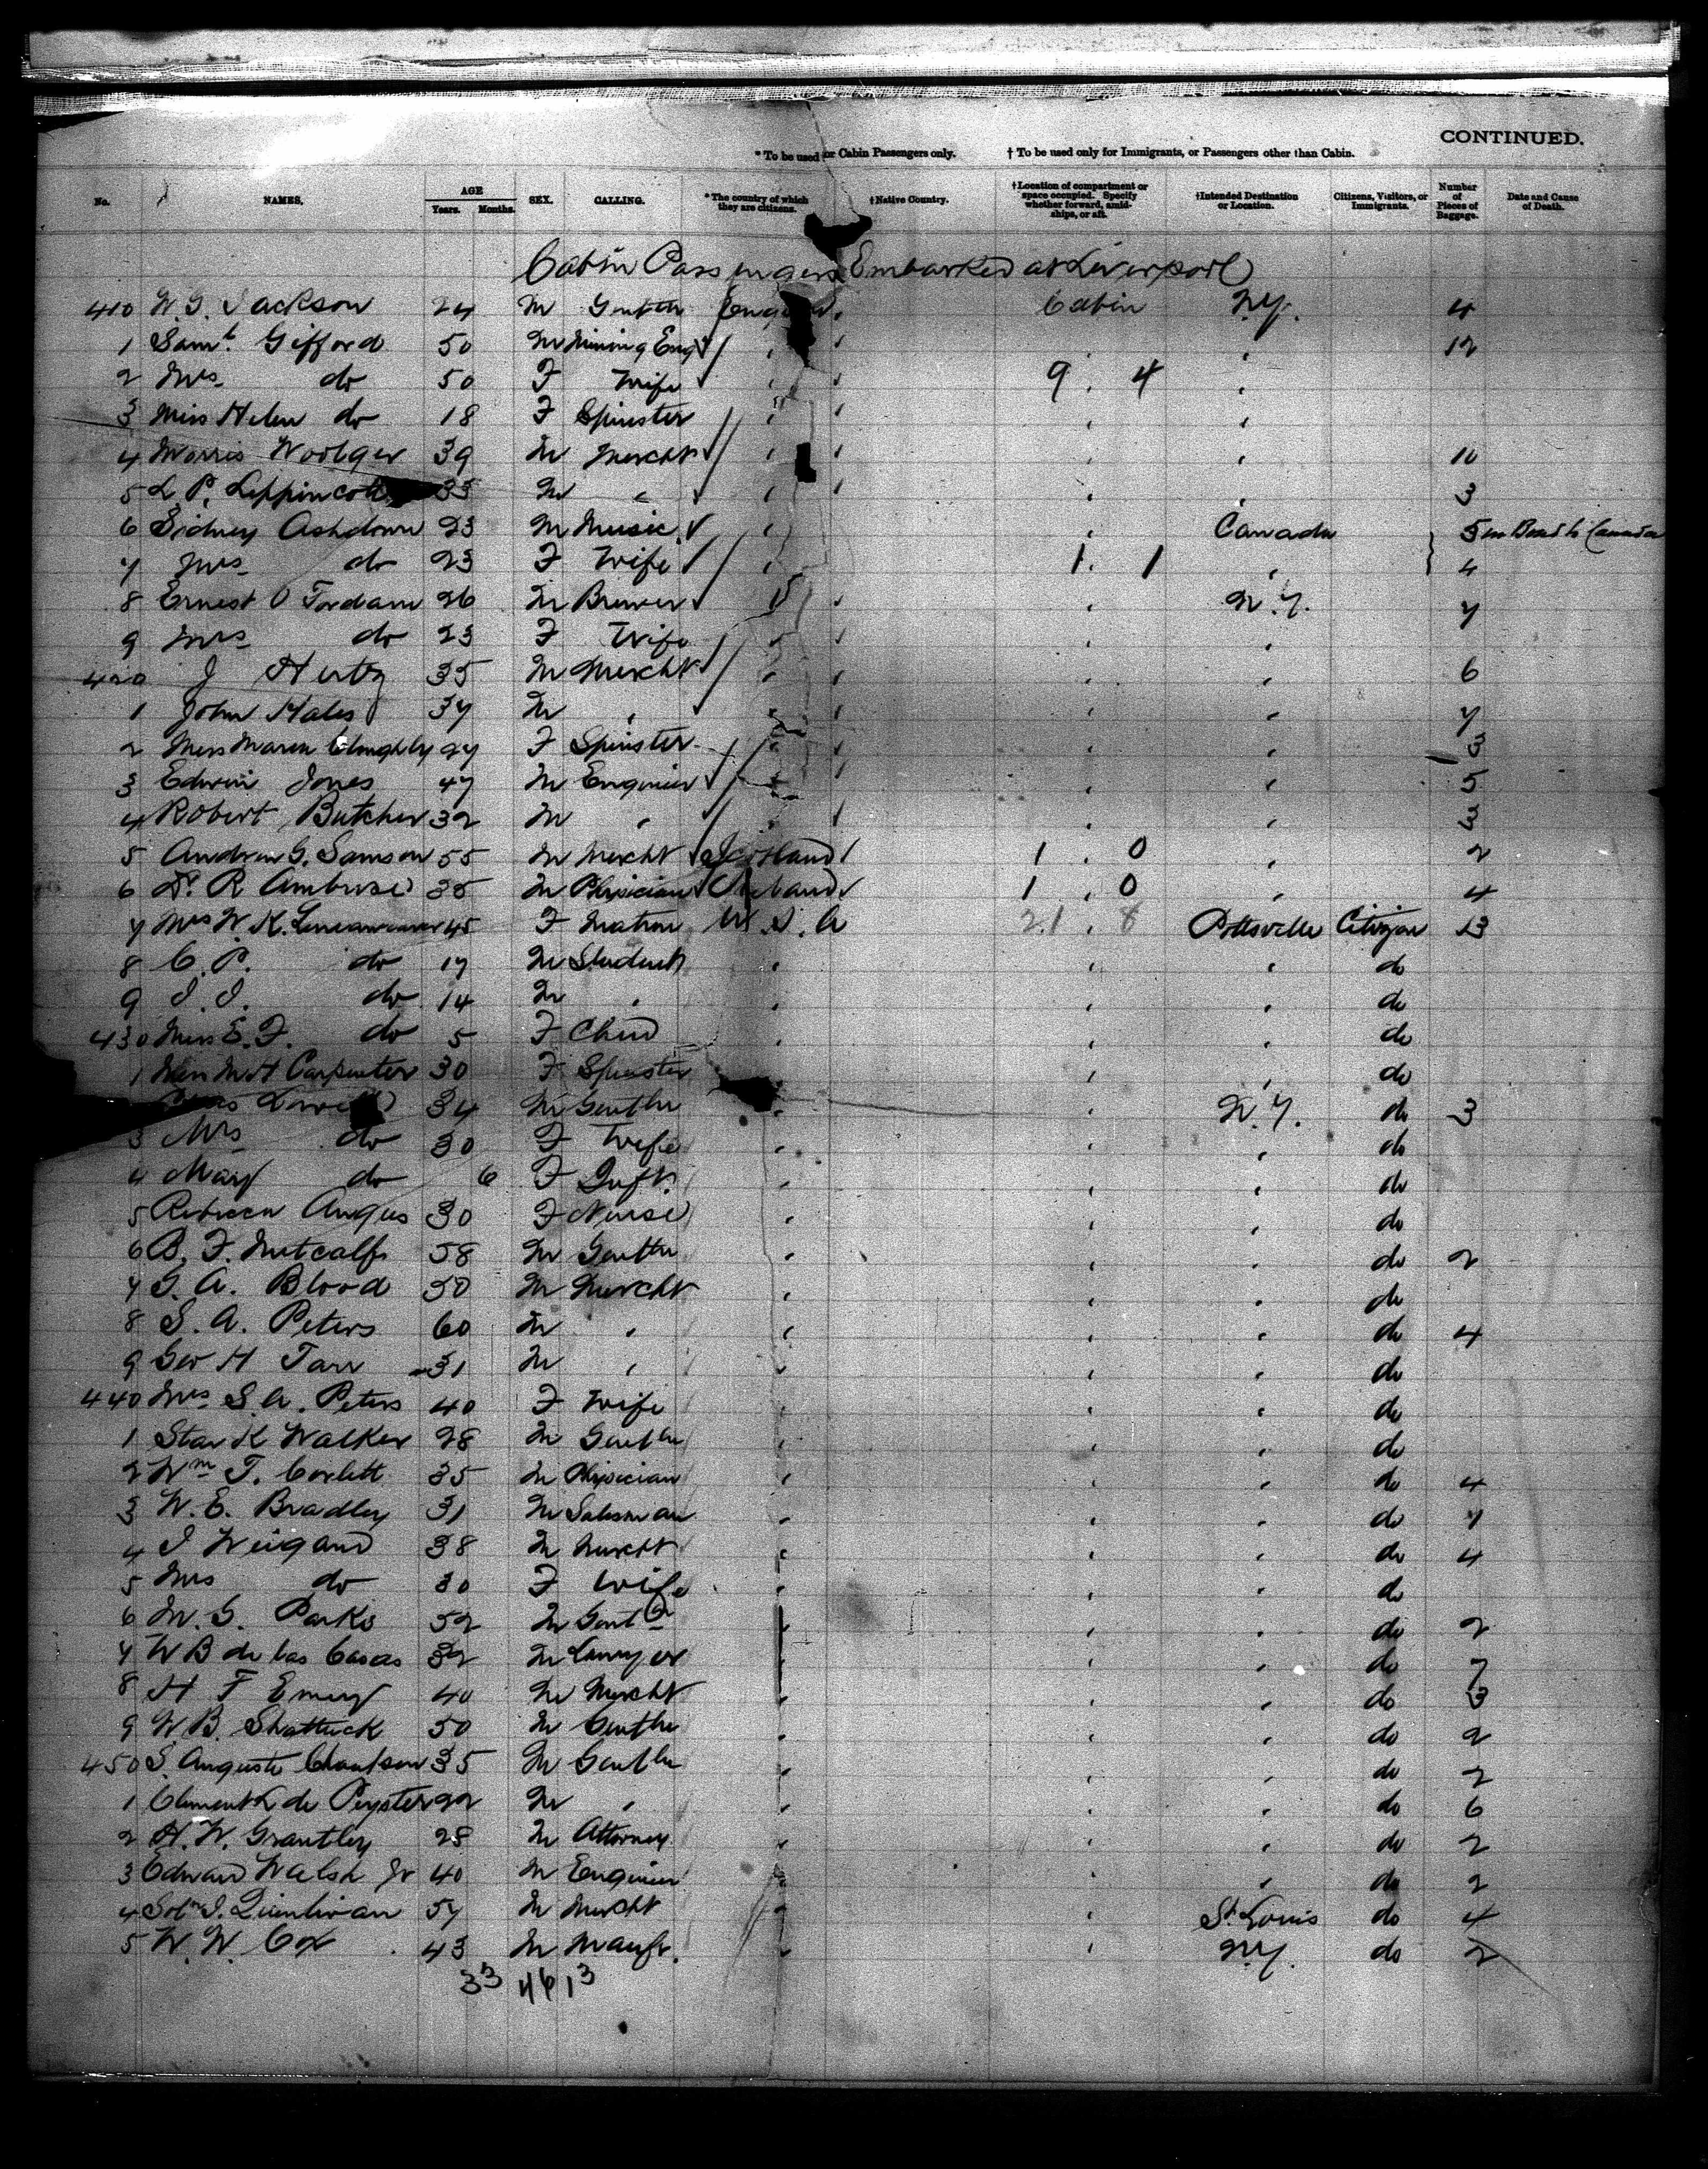 CONTINUED.
* To be used for Cabin Passengers only. † To be used only for Immigrants, or Passengers other than Cabin.
No. NAMES. AGE Years. Months. SEX. CALLING. * The country of which they are citizens. † Native Country. † Location of compartment or space occupied. Specify whether forward, amidships, or aft. † Intended Destination or Location. Citizens, Visitors, or Immigrants. Number of Pieces of Baggage. Date and Cause of Death.
Cabin Passengers Embarked at Liverpool
410 W. G. Jackson 24 M Cabin N.Y. 4
1 Saml. Gifford 50 M Mining Eng 12
2 Mrs do 50 F Wife 9 4
3 Miss Helen do 18 F Spinster
4 Morris 39 M Mercht 10
5 L P. Lippincott 35 M " 3
6 Sidney Ashdown 23 M Music Canada 5
7 Mrs do 23 F Wife 1 1 " 4
8 Ernest O Fordam 26 M Brewer N.Y. 7
9 Mrs do 23 F Wife
420 J Hertz 35 M Mercht 6
1 John Hales 37 M " 7
2 Miss 27 F Spinster 3
3 Edwin Jones 47 M Engineer 5
4 Robert Butcher 32 M " 3
5 Andrew G. Samson 55 M Mercht Scotland 1 0 2
6 Dr R Ambrose 35 M Physician Ireland 1 0 4
7 Mrs W. K. 45 F Matron U.S.A 21 8 Pottsville Citizen 13
8 C. P. do 17 M Student do
9 J. J. do 14 M " do
430 Miss E. F. do 5 F Child do
1 Miss M H Carpenter 30 F Spinster do
34 M Gentln N.Y. do 3
3 Mrs do 30 F Wife do
4 Mary do 6 F Inft. do
5 Rebecca Angus 30 F Nurse do
6 B. F. Metcalf 58 M Gentln do 2
7 G. A. Blood 50 M Mercht do
8 S. A. Peters 60 M " do 4
9 Geo H Tarr 31 M " do
440 Mrs S. A. Peters 40 F Wife do
1 Star K Walker 28 M Gentln do
2 Wm T. Corlett 35 M Physician do 4
3 W. E. Bradley 31 M Salesman do
4 J Weigand 38 M Mercht do 4
5 Mrs do 30 F Wife do
6 M. G. Parks 52 M Gentn do 2
7 W B de las Casas 32 M Lawyer do 7
8 H F Emery 40 M Mercht do 3
9 W B. Shattuck 50 M Gentln do 2
450 S. Auguste 35 M Gentln do 2
1 Clement L de Peyster 22 M " do 6
2 H. W. Grantley 28 M Attorney do 2
3 Edward Walsh Jr 40 M Engineer do 2
4 57 M Mercht St. Louis do 4
5 W. W. Cox 43 M Manfr. N.Y. do 2
33 46 13